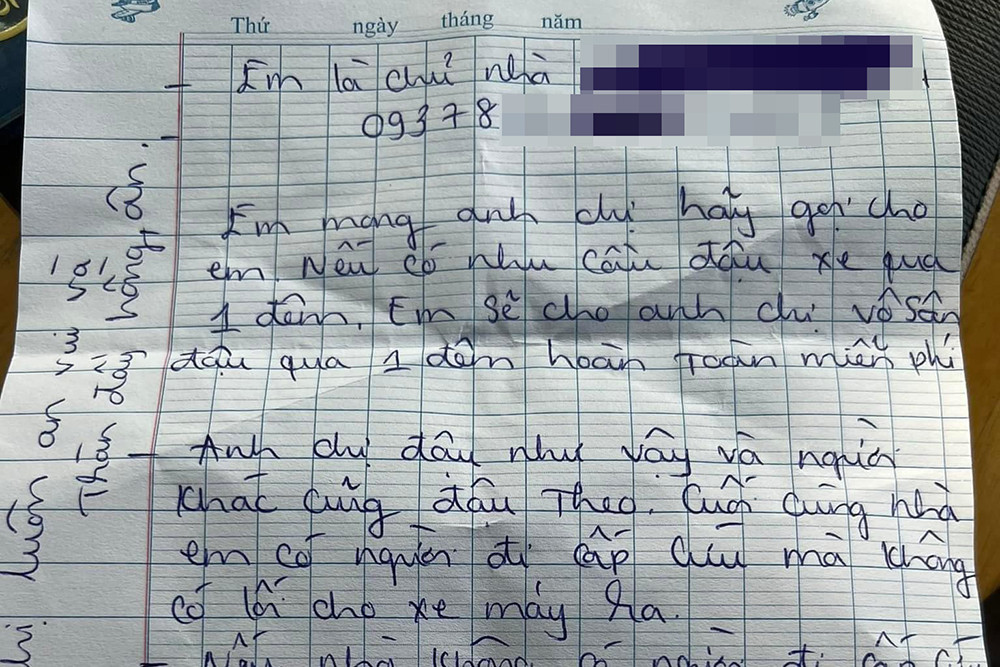 Thứ ngày tháng năm
- Em là chủ nhà
09378
-
Em mong anh chị hãy gọi cho
em. Nếu có nhu cầu đậu xe qua
1 đêm. Em sẽ cho anh chị vô sân
đậu qua 1 đêm hoàn toàn miễn phí
- Anh chị đậu như vậy và người
khác cũng đậu theo. Cuối cùng nhà
em có người đi cấp cứu mà không
có lối cho xe máy ra.
- Nếu nhà không có người đi cấp cứu
luôn an vui và
Thần đầy hồng ân.